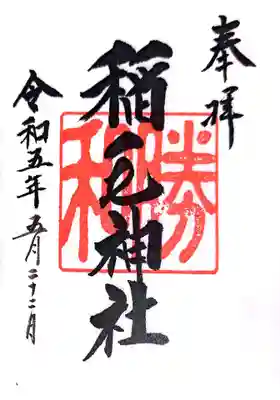 奉拝
稲毛神社
勝
令和五年五月二十二日